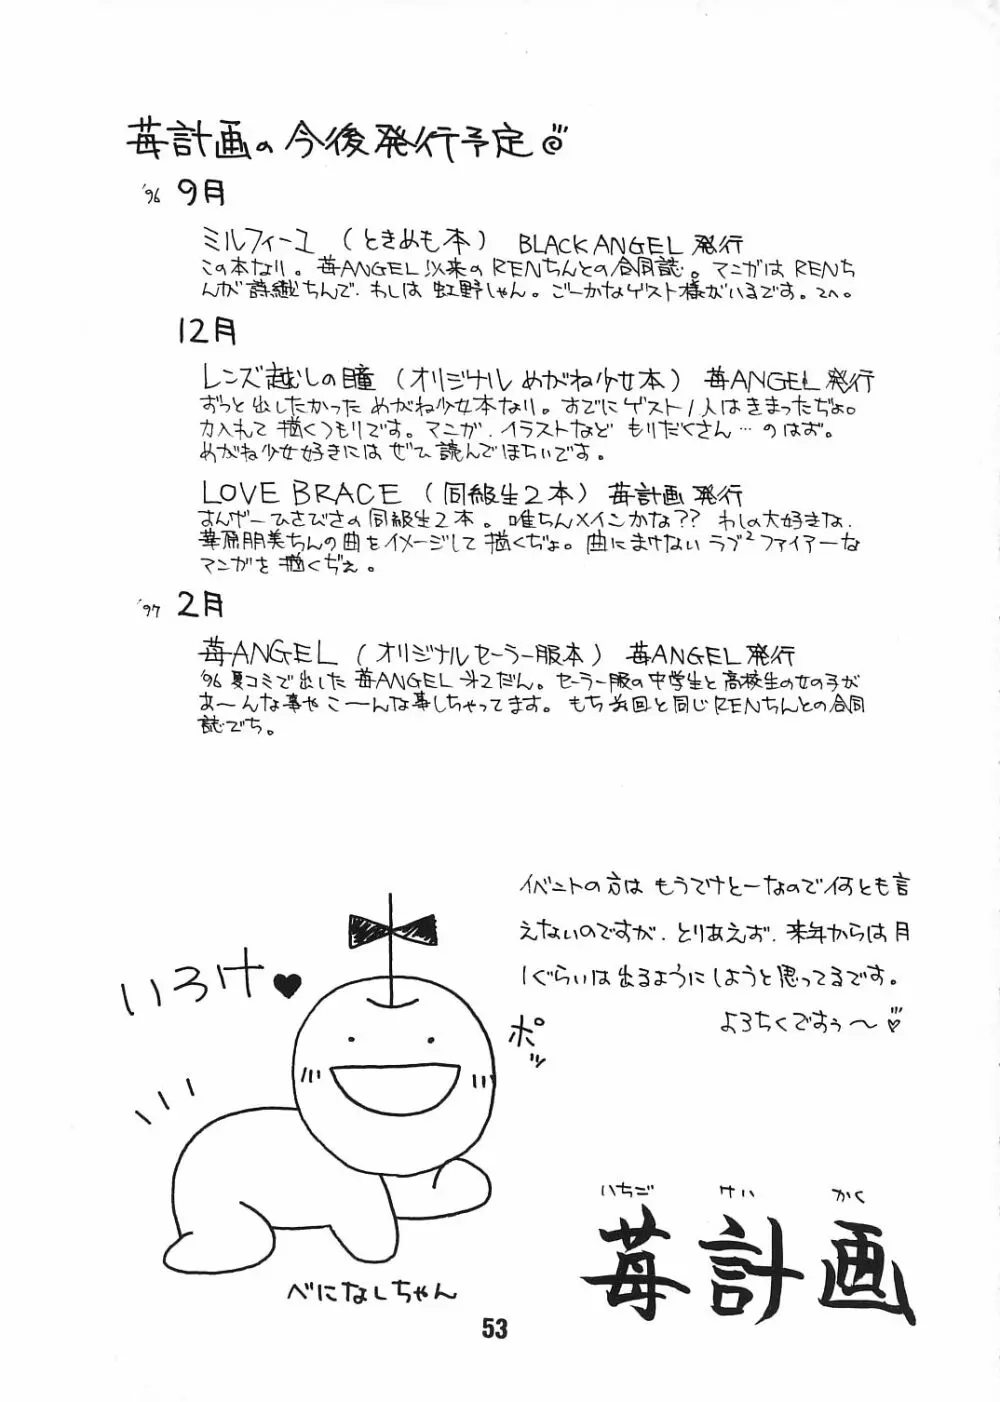 苺計画の今後発行予定
'96 9月
ミルフィーユ (ときめも本) BLACK ANGEL 発行
この本なり。苺ANGEL以来のRENちんとの合同誌。マンガはRENち
んが詩織ちんで、わしは虹野しゃん。ごーかなゲスト様がいるです。
12月
レンズ越しの瞳 (オリジナルめがね少女本) 苺ANGEL 発行
ずっと出したかっためがね少女本なり。すでにゲスト1人はきまったぢょ。
力入れて描くつもりです。マンガ、イラストなどもりだくさん…のはず。
めがね少女好きにはぜひ読んでほちいです。
LOVE BRACE (同級生2本) 苺計画発行
すんげーひさびさの同級生2本。唯ちんメインかな?? わしの大好きな、
華原朋美ちんの曲をイメージして描くぢょ。曲にまけないラブ²ファイアーな
マンガを描くぢぇ。
'97 2月
苺ANGEL (オリジナルセーラー服本) 苺ANGEL発行
'96夏コミで出した苺ANGEL 第2だん。セーラー服の中学生と高校生の女の子が
あ～んな事やこ～んな事しちゃってます。もち前回と同じRENちんとの合同
誌でち。
イベントの方はもうてけとーなので何とも言
えないのですが、とりあえず、来年からは月
1ぐらいは出るようにしようと思ってるです。
よろちくですぅ～
いろけ♥
ポッ
べになしちゃん
いちご けい かく
苺計画
53